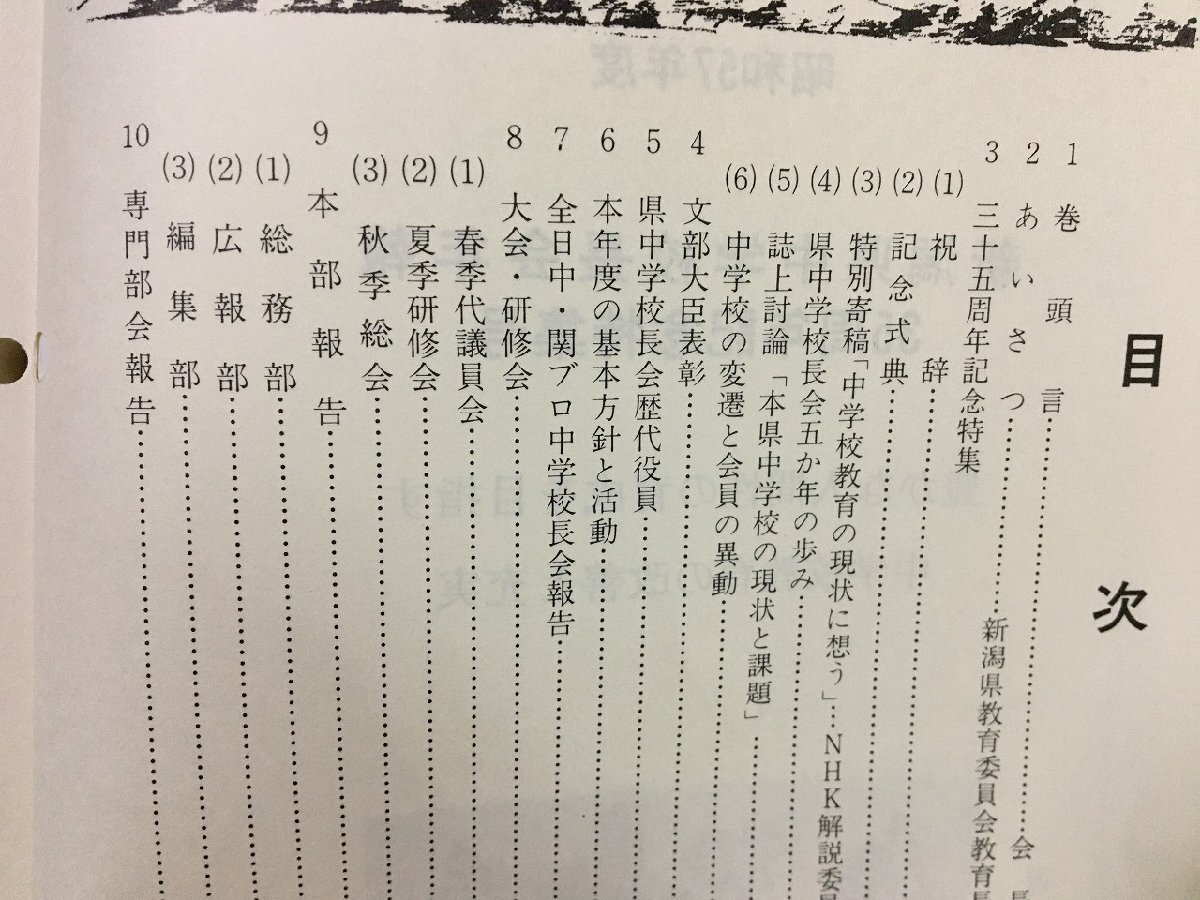 目次
1 巻頭言……会長
2 あいさつ……新潟県教育委員会教育長
3 三十五周年記念特集
(1) 祝辞……
(2) 記念式典……
(3) 特別寄稿「中学校教育の現状に想う」…NHK解説委員
(4) 県中学校長会五か年の歩み……
(5) 誌上討論「本県中学校の現状と課題」……
(6) 中学校の変遷と会員の異動……
4 文部大臣表彰……
5 県中学校長会歴代役員……
6 本年度の基本方針と活動……
7 全日中・関ブロ中学校長会報告……
8 大会・研修会……
(1) 春季代議員会……
(2) 夏季研修会……
(3) 秋季総会……
9 本部報告……
(1) 総務部……
(2) 広報部……
(3) 編集部……
10 専門部会報告……
昭和57年度